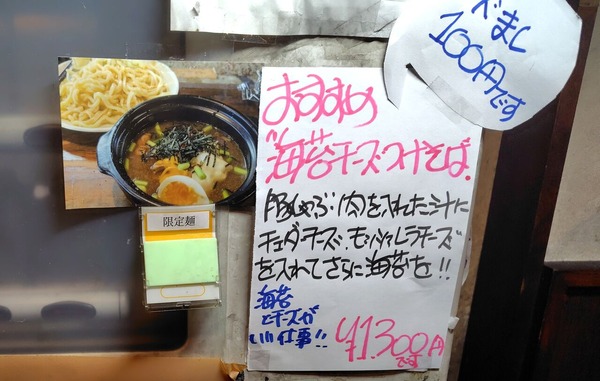 べまし
100円です
おすすめ
"海苔チーズつけそば"
豚しゃぶ肉を入れた汁に
チェダーチーズ、モッツァレラチーズ
を入れてさらに海苔を!!
海苔
とチーズが
いい仕事!!
¥1.300円
です
限定麺